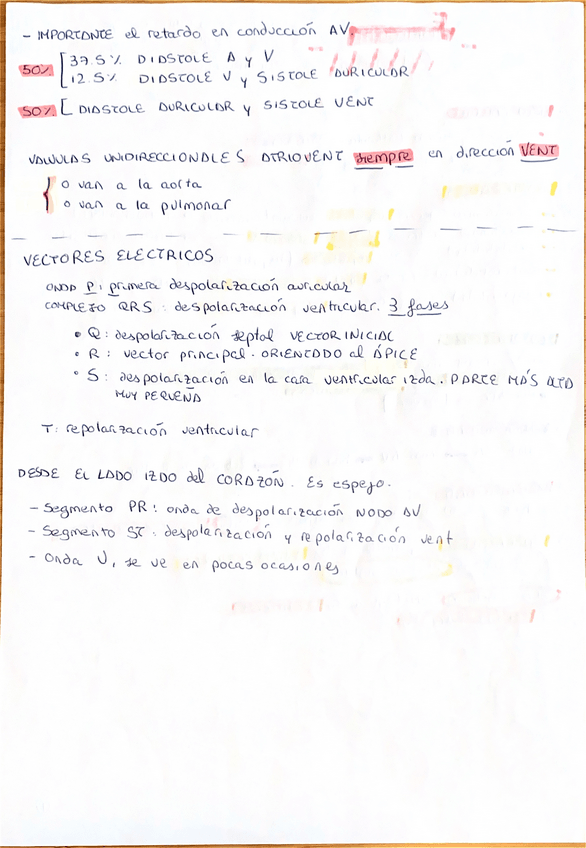 - IMPORTANTE el retardo en conducción AV.
50% [ 37.5% DIASTOLE A y V
12.5% DIASTOLE V y SISTOLE AURICULAR
50% [ DIASTOLE AURICULAR y SISTOLE VENT
VALVULAS UNIDIRECCIONALES ATRIOVENT siempre en dirección VENT
{ o van a la aorta
o van a la pulmonar
VECTORES ELECTRICOS
ONDA P: primera despolarización auricular
COMPLEJO QRS: despolarización ventricular. 3 fases
• Q: despolarización septal VECTOR INICIAL
• R: vector principal. ORIENTADO al ÁPICE
• S: despolarización en la cara ventricular izda. PARTE MÁS ALTA
MUY PEQUEÑA
T: repolarización ventricular
DESDE EL LADO IZDO del CORAZÓN. Es espejo.
- Segmento PR: onda de despolarización NODO AV
- Segmento ST: despolarización y repolarización vent
- Onda U, se ve en pocas ocasiones